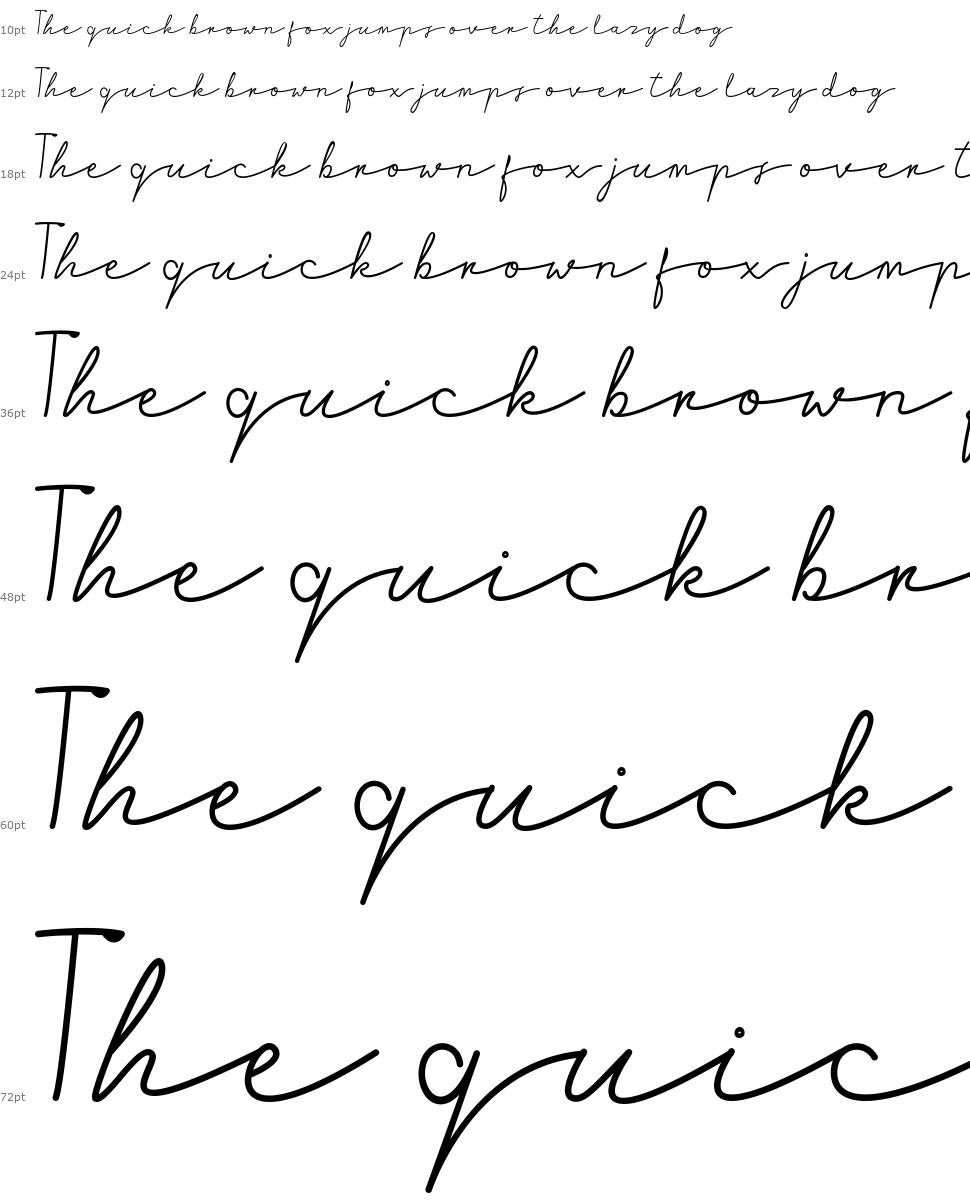 10pt The quick brown fox jumps over the lazy dog
12pt The quick brown fox jumps over the lazy dog
18pt The quick brown fox jumps over t
24pt The quick brown fox jump
36pt The quick brown f
48pt The quick br
60pt The quick
72pt The quic